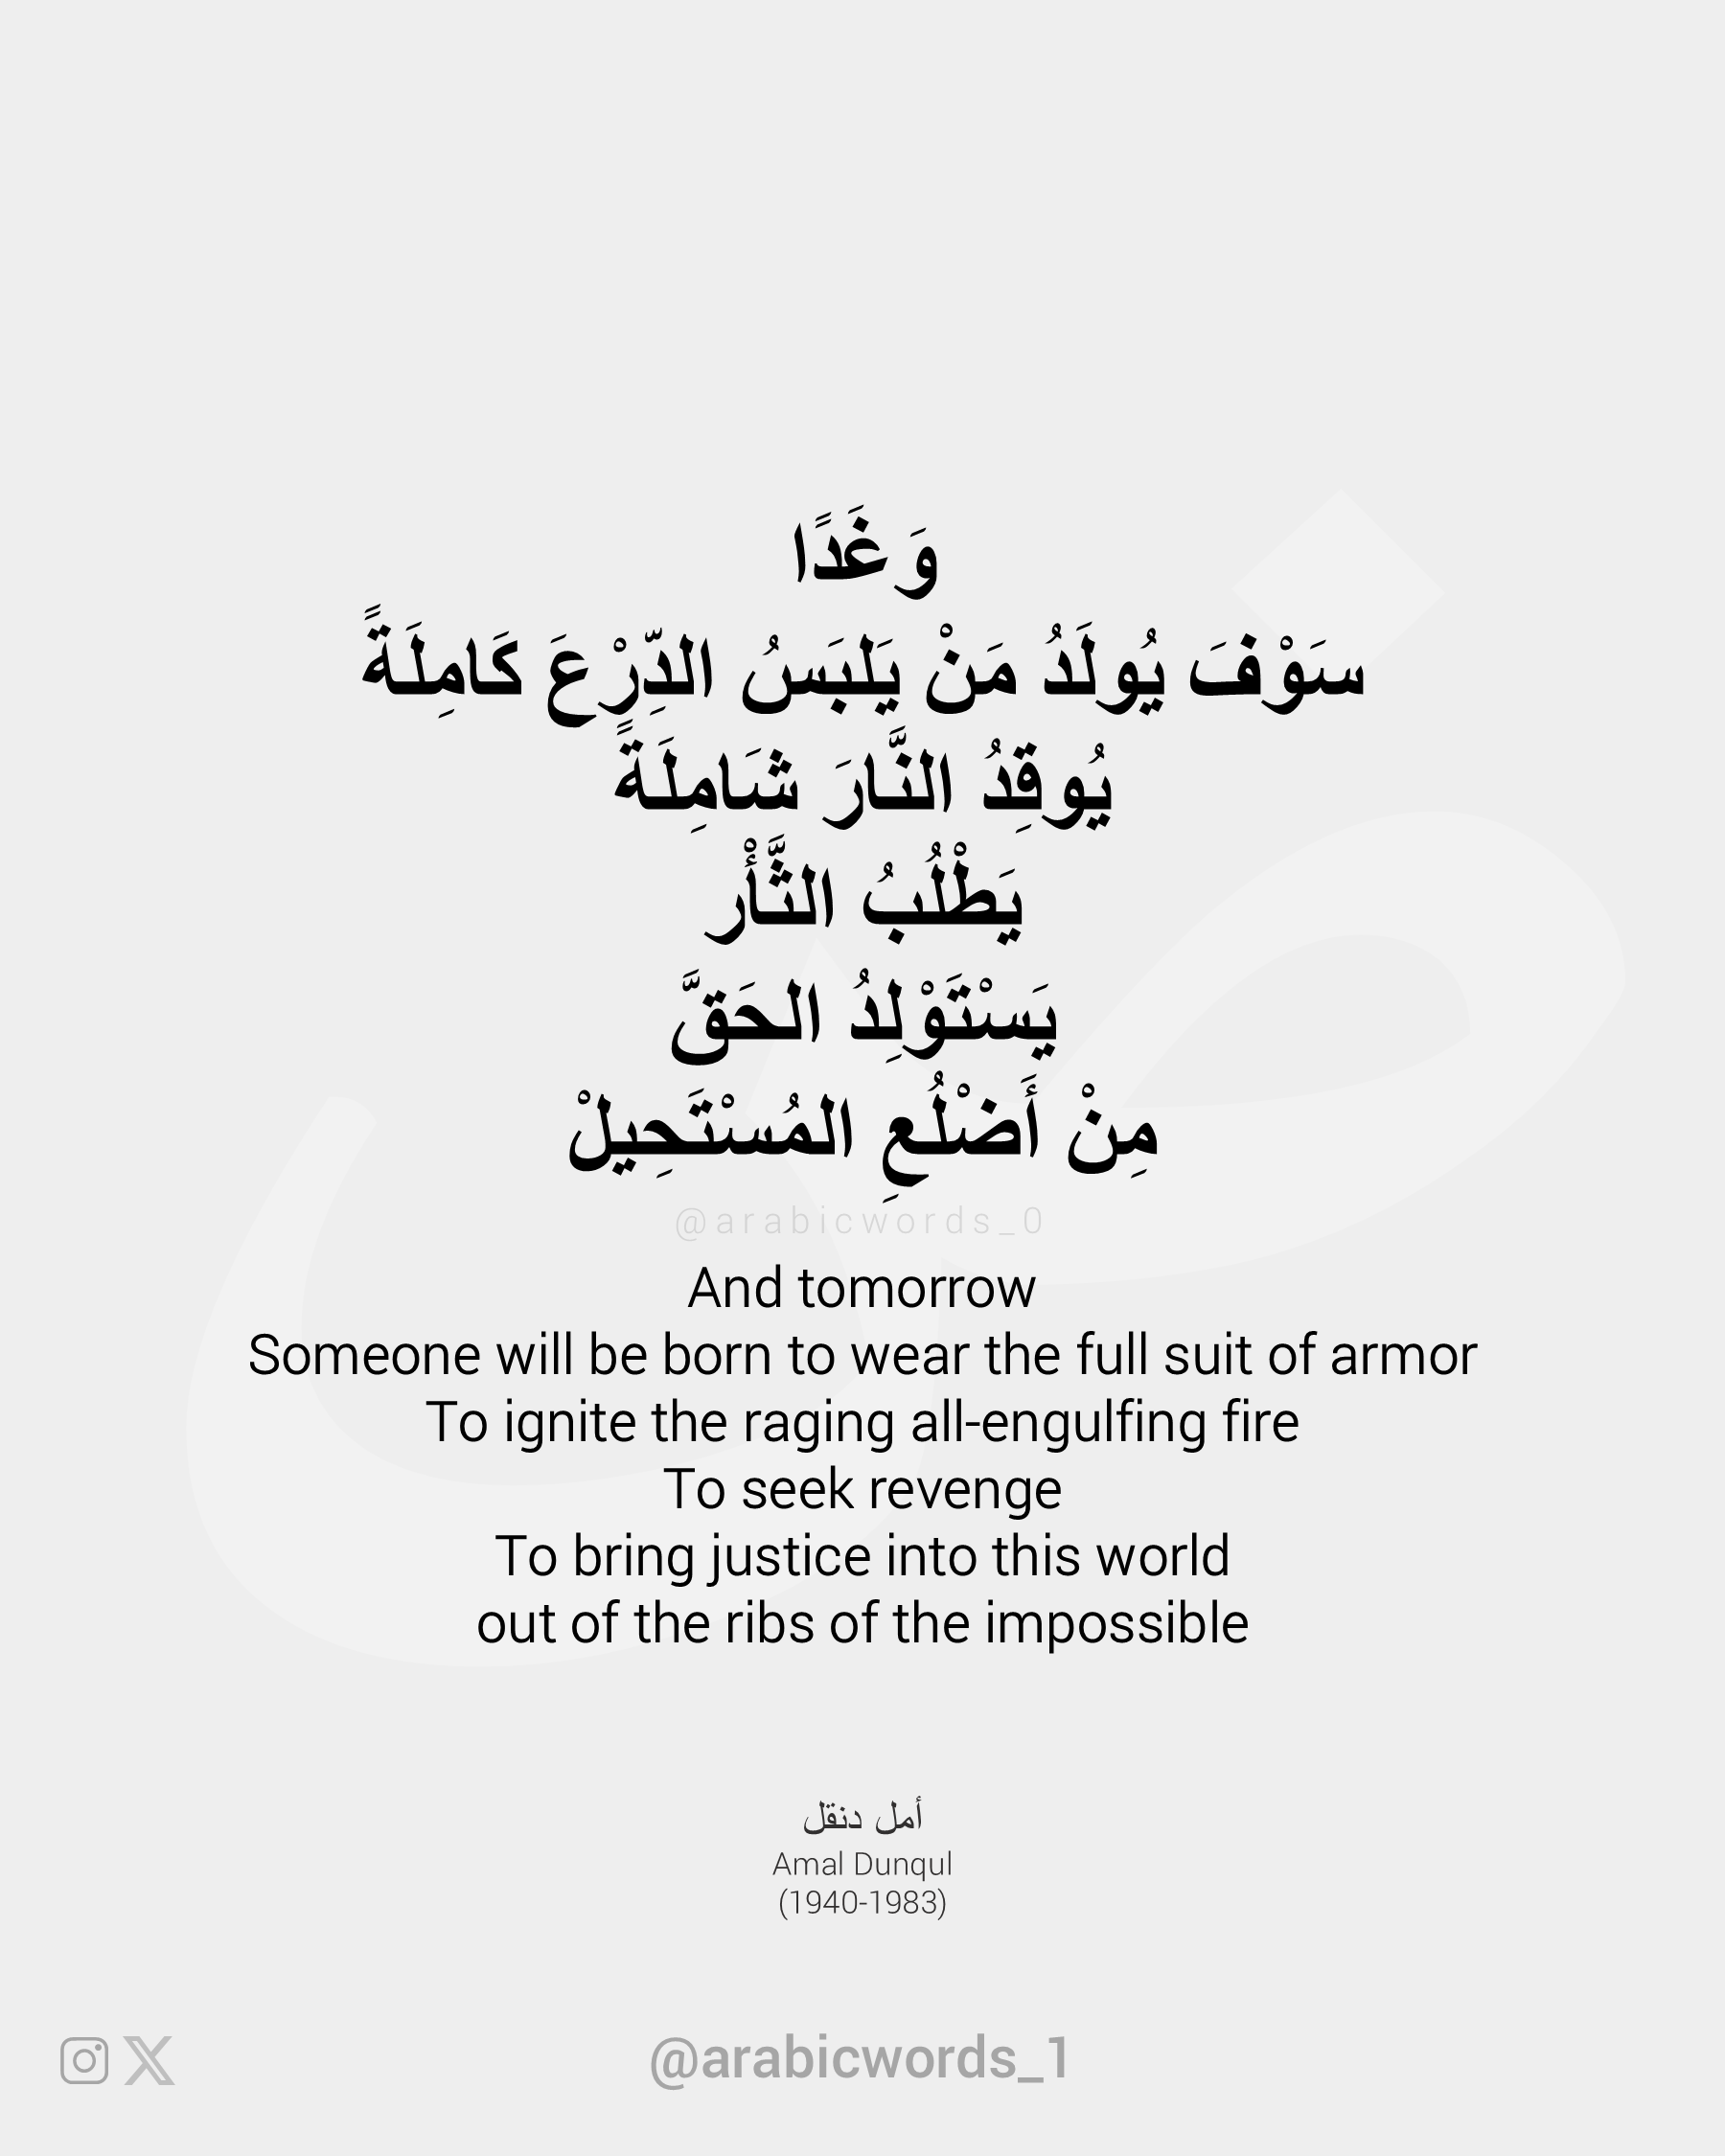 وَغَدًا
سَوْفَ يُولَدُ مَنْ يَلبَسُ الدِّرْعَ كَامِلَةً
يُوقِدُ النَّارَ شَامِلَةً
يَطْلُبُ الثَّأْر
يَسْتَوْلِدُ الحَقَّ
مِنْ أَضْلُعِ المُسْتَحِيلْ
@arabicwords_0
And tomorrow
Someone will be born to wear the full suit of armor
To ignite the raging all-engulfing fire
To seek revenge
To bring justice into this world
out of the ribs of the impossible
أمل دنقل
Amal Dunqul
(1940-1983)
@arabicwords_1
ض